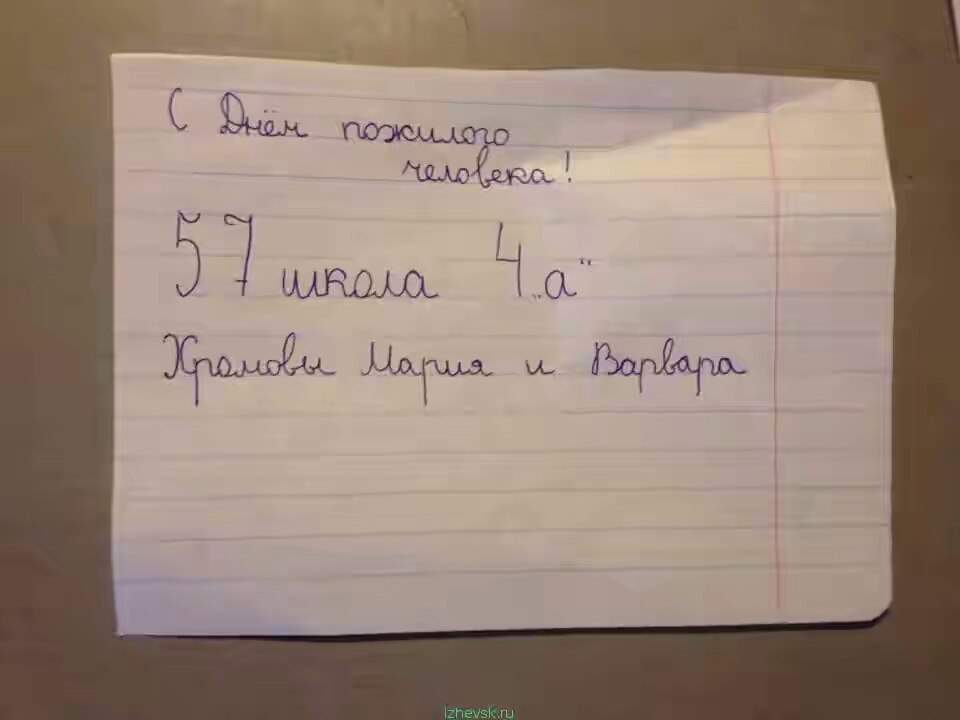 С Днём пожилого
человека!
57 школа 4 „а“
Хромовы Мария и Варвара
Izhevsk.ru